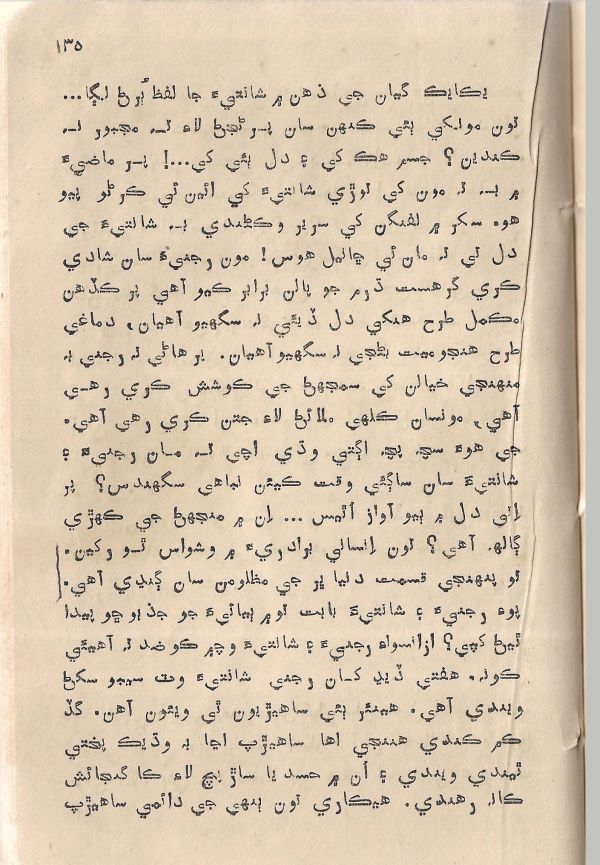 ١٣٥
يڪايڪ گيان جي ذهن ۾ شانتيءَ جا لفظ ٻُرڻ لڳا...
تون مونکي ٻئي ڪنهن سان پرڻجڻ لاءِ نہ مجبور نہ
ڪندين؟ جسم هڪ کي ۽ دل ٻئي کي...! پر ماضيءَ
۾ بہ تہ مون کي ٿوڙي شانتيءَ کي ائين ئي ڪرڻو پيو
هو. سکر ۾ لفنگن کي سرير وڪڻندي بہ شانتيءَ جي
دل تي تہ مان ئي ڇانيل هوس! مون رجنيءَ سان شادي
ڪري گرهست ڌرم جو پالن برابر ڪيو آهي پر ڪڏهن
مڪمل طرح هنکي دل ڏيئي نہ سگهيو آهيان، دماغي
طرح هنجوميت بڻجي نہ سگهيو آهيان. بر هاڻي تہ رجني بہ
منهنجي خيالن کي سمجهڻ جي ڪوشش ڪري رهي
آهي، مونسان ڪلهي ملائڻ لاءِ جتن ڪري رهي آهي.
جي هوءَ سچ پچ اڳتي وڌي اچي تہ مان رجنيءَ ۽
شانتيءَ سان ساڳئي وقت ڪيئن نباهي سگهندس؟ پر
اتي دل ۾ ٻيو آواز آئيس ... ان ۾ منجهڻ جي ڪهڙي
ڳالهہ آهي؟ تون انساني برادريءَ ۾ وشواس ٿو رکين.
تو پنهنجي قسمت دنيا ڀر جي مظلومن سان ڳنڍي آهي.
پوءِ رجنيءَ ۽ شانتيءَ بابت تو۾ ٻيائيءَ جو جذبو ڇو پيدا
ٿيڻ کپي؟ ازانسواءِ رجنيءَ ۽ شانتيءَ وچ۾ ڪو ضد تہ آهيئي
ڪونہ. هفتي ڏيڍ کان رجني شانتيءَ وٽ سيبو سکڻ
ويندي آهي. هينئر ٻئي ساهيڙيون ٿي ويئون آهن. گڏ
ڪم ڪندي هنجي اها ساهيڙپ اڃا بہ وڌيڪ پختي
ٿيندي ويندي ۽ اُن ۾ حسد يا ساڙ پچ لاءِ ڪا گنجائش
ڪانہ رهندي. هيڪاري تون ٻنهي جي دائمي ساهيڙپ